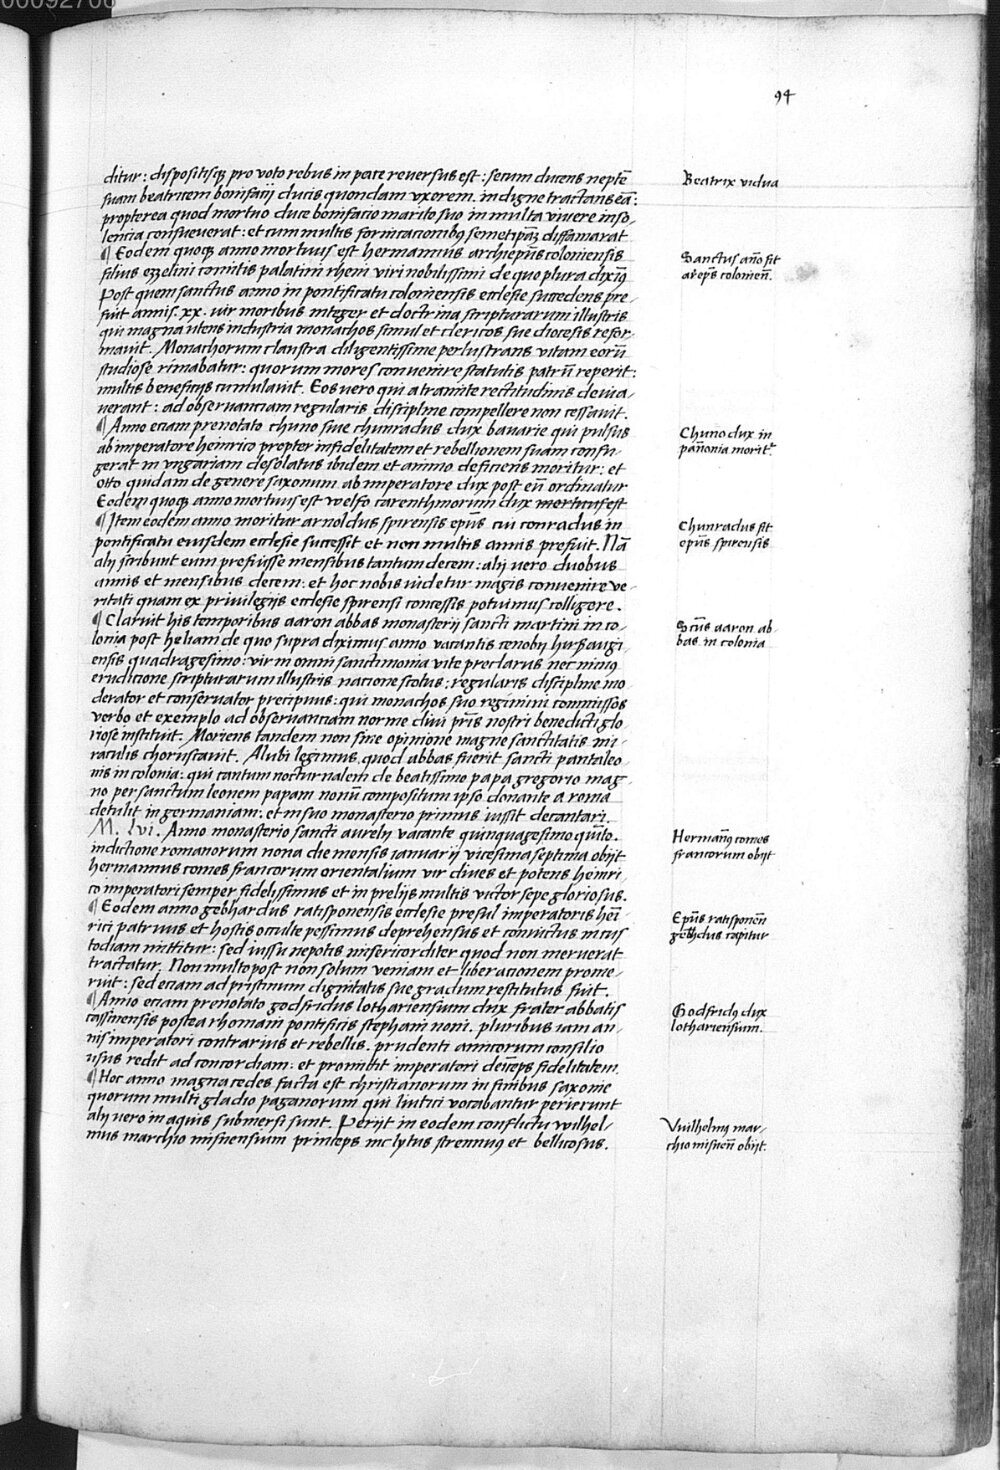 00092706
94
ditur : dispositisqʒ pro voto rebus in pace reversus est : secum ducens neptē
suam beatricem bonifacij ducis quondam vxorem. indigne tractans eā :
propterea quod mortuo duce bonifacio marito suo in multa vivere inso,
lencia consueverat : et cum multis fornicacionibꝰ semetipsā diffamarat
Beatrix vidua
¶ Eodem quoqʒ anno mortuus est hermannus archiepūs coloniensis
filius ezzelini comitis palatini rheni viri nobilissimi de quo plura diximꝰ
Post quem sanctus anno in pontificatu coloniensis ecclesie succedens pre,
fuit annis .xx. vir moribus integer et doctrina scripturarum illustris
qui magna utens industria monachos simul et clericos sue diocesis refor,
mavit. Monachorum claustra diligentissime perlustrans vitam eorū
studiose rimabatur : quorum mores convenire statutis patrū reperit :
multis beneficijs cumulavit. Eos vero qui a tramite rectitudinis devia,
verant : ad observanciam regularis discipline compellere non cessavit.
Sanctus āno fit
arēpūs colonieñ.
¶ Anno eciam prenotato chuno sive chunradus dux bavarie qui pulsus
ab imperatore heinrico propter infidelitatem et rebellionem suam confu,
gerat in vngariam desolatus ibidem et animo deficiens moritur : et
otto quidam de genere saxonum ab imperatore dux post eū ordinatur
Eodem quoqʒ anno mortuus est welfo carenthinorum dux mortuus est
Chuno dux in
pāñonia moritʳ
¶ Item eodem anno moritur arnoldus spirensis epūs cui conradus in
pontificatu eiusdem ecclesie successit et non multis annis prefuit. Nā
alij scribunt eum prefuisse mensibus tantum decem : alij vero duobus
annis et mensibus decem : et hoc nobis videtur magis convenire ve,
ritati quam ex privilegijs ecclesie spirensi concessis potuimus colligere.
Chunradus fit
epūs spirensis
¶ Claruit his temporibus aaron abbas monasterij sancti martini in co,
lonia post heliam de quo supra diximus anno vacantis cenobij hirsaugi
ensis quadragesimo : vir in omni sanctimonia vite preclarus nec minꝰ
erudicione scripturarum illustris nacione scotus : regularis discipline mo
derator et conservator precipuus : qui monachos suo regimini commissos
verbo et exemplo ad observanciam norme divi pr̄is nostri benedicti glo
riose instituit. Moriens tandem non sine opinione magne sanctitatis mi,
raculis choruscavit. Alubi legimus quod abbas fuerit sancti pantaleo,
nis in colonia : qui cantum nocturnalem de beatissimo papa gregorio mag,
no per sanctum leonem papam nonū compositum ipso donante a roma
detulit in germaniam : et in suo monasterio primus iussit decantari.
Scūs aaron ab,
bas in colonia
M. lvi. Anno monasterio sancti aurelij vacante quinquagesimo quīto.
indictione romanorum nona die mensis ianuarij vicesima septima obijt
hermannus comes francorum orientalium vir dives et potens heinri,
co imperatori semper fidelissimus et in prelijs multis victor sepe gloriosus.
Hermanꝰ comes
francorum obijt
¶ Eodem anno gebhardus ratisponensis ecclesie presul imperatoris hēi
rici patruus et hostis occulte pessimus deprehensus et convictus in cus
todiam mittitur : sed iussu nepotis misericorditer quod non meruerat
tractatur. Non multo post non solum veniam et liberacionem prome,
ruit : sed eciam ad pristinum dignitatis sue gradum restitutus fuit.
Epūs ratisponeñ
gebhdus capitur
¶ Anno eciam prenotato godfridus lothariensium dux frater abbatis
cassinensis postea rhomani pontificis stephani noni. pluribus iam an,
nis imperatori contrarius et rebellis. prudenti amicorum consilio
usus redit ad concordiam : et promisit imperatori deīceps fidelitatem.
Godfridꝰ dux
lothariensium.
¶ Hoc anno magna cedes facta est christianorum in finibus saxonie
quorum multi gladio paganorum qui liutici vocabantur perierunt
alij vero in aquis submersi sunt. Perijt in eodem conflictu wilhel,
mus marchio misnensium princeps inclytus strennuꝰ et bellicosus.
Vuilhelmꝰ mar,
chio misneñ obijt.